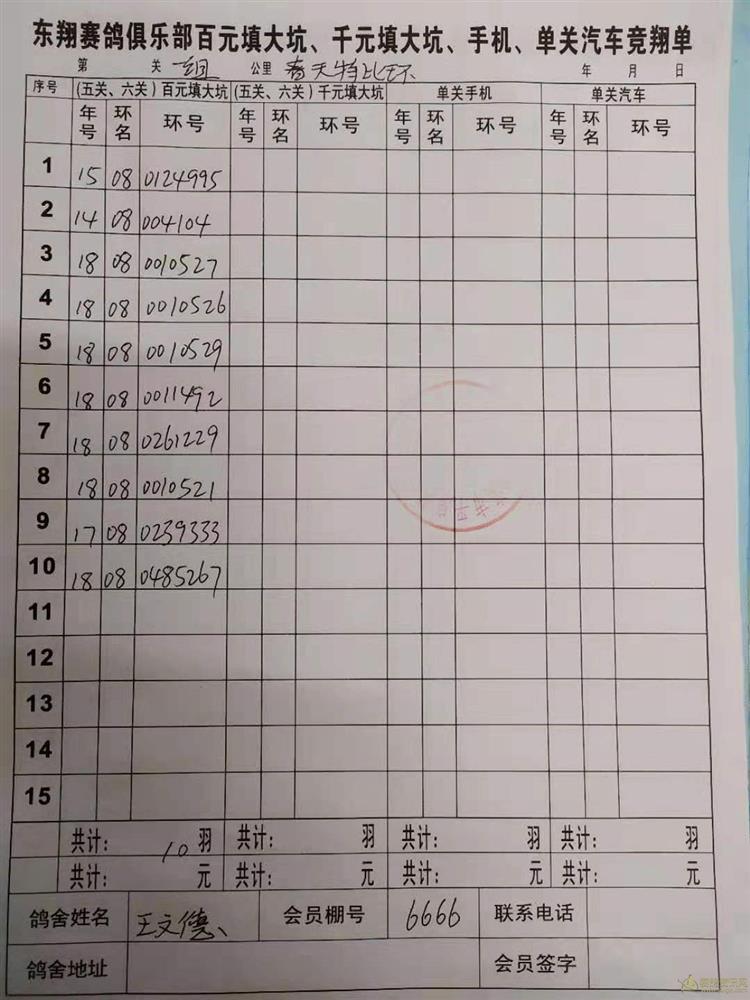 东翔赛鸽俱乐部百元填大坑、千元填大坑、手机、单关汽车竞翔单
第 关 一组 公里 春天特比环 年 月 日
序号 (五关、六关)百元填大坑 (五关、六关)千元填大坑 单关手机 单关汽车
年号 环名 环号 年号 环名 环号 年号 环名 环号 年号 环名 环号
1 15 08 0124995
2 14 08 004104
3 18 08 0010527
4 18 08 0010526
5 18 08 0010529
6 18 08 0011492
7 18 08 0261229
8 18 08 0010521
9 17 08 0239333
10 18 08 0485267
11
12
13
14
15
共计: 10 羽 共计: 羽 共计: 羽 共计: 羽
共计: 元 共计: 元 共计: 元 共计: 元
鸽舍姓名 王文德 会员棚号 6666 联系电话
鸽舍地址 会员签字